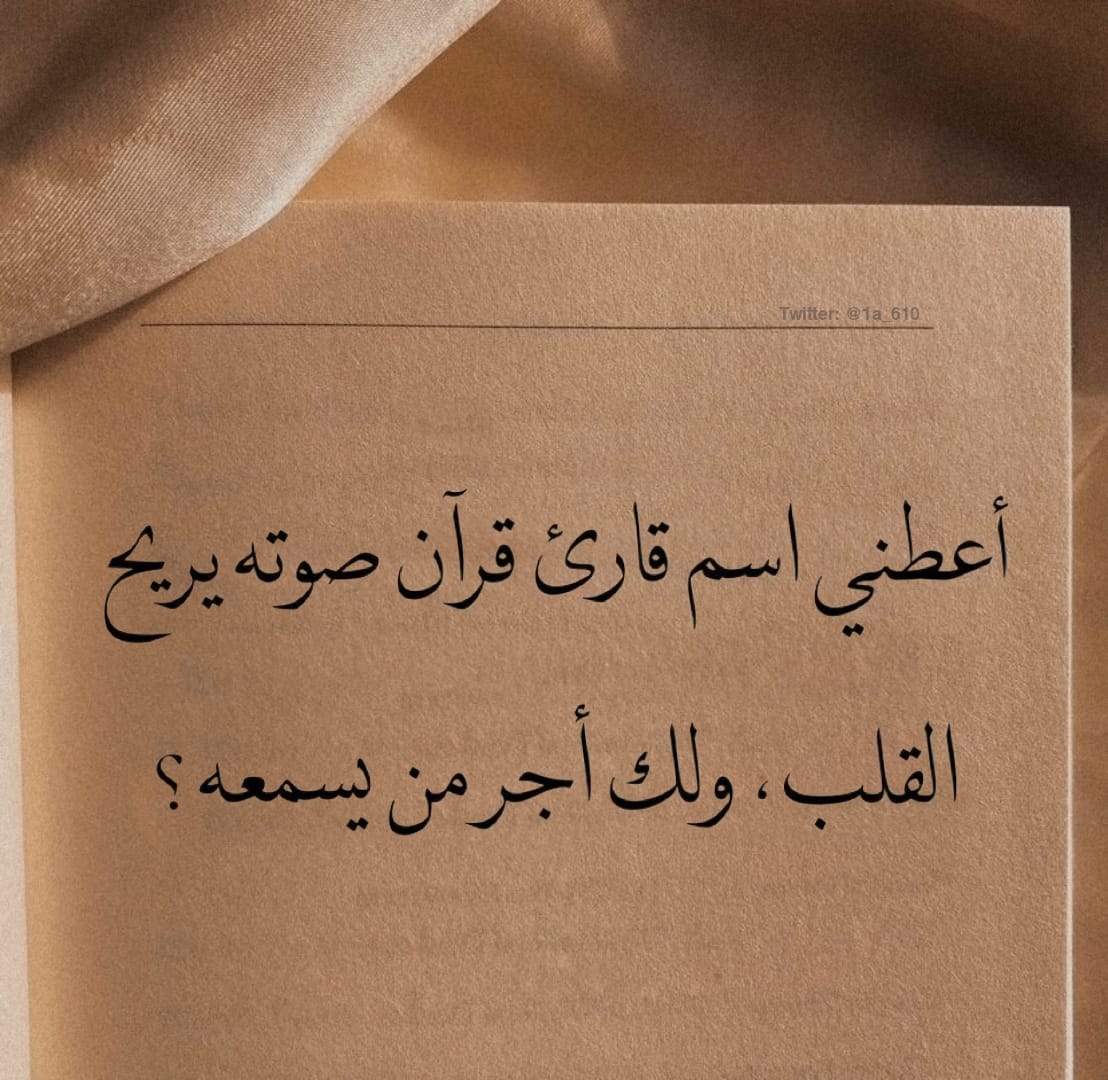 Twitter: @1a_610
أعطني اسم قارئ قرآن صوته يريح
القلب ، ولك أجر من يسمعه ؟